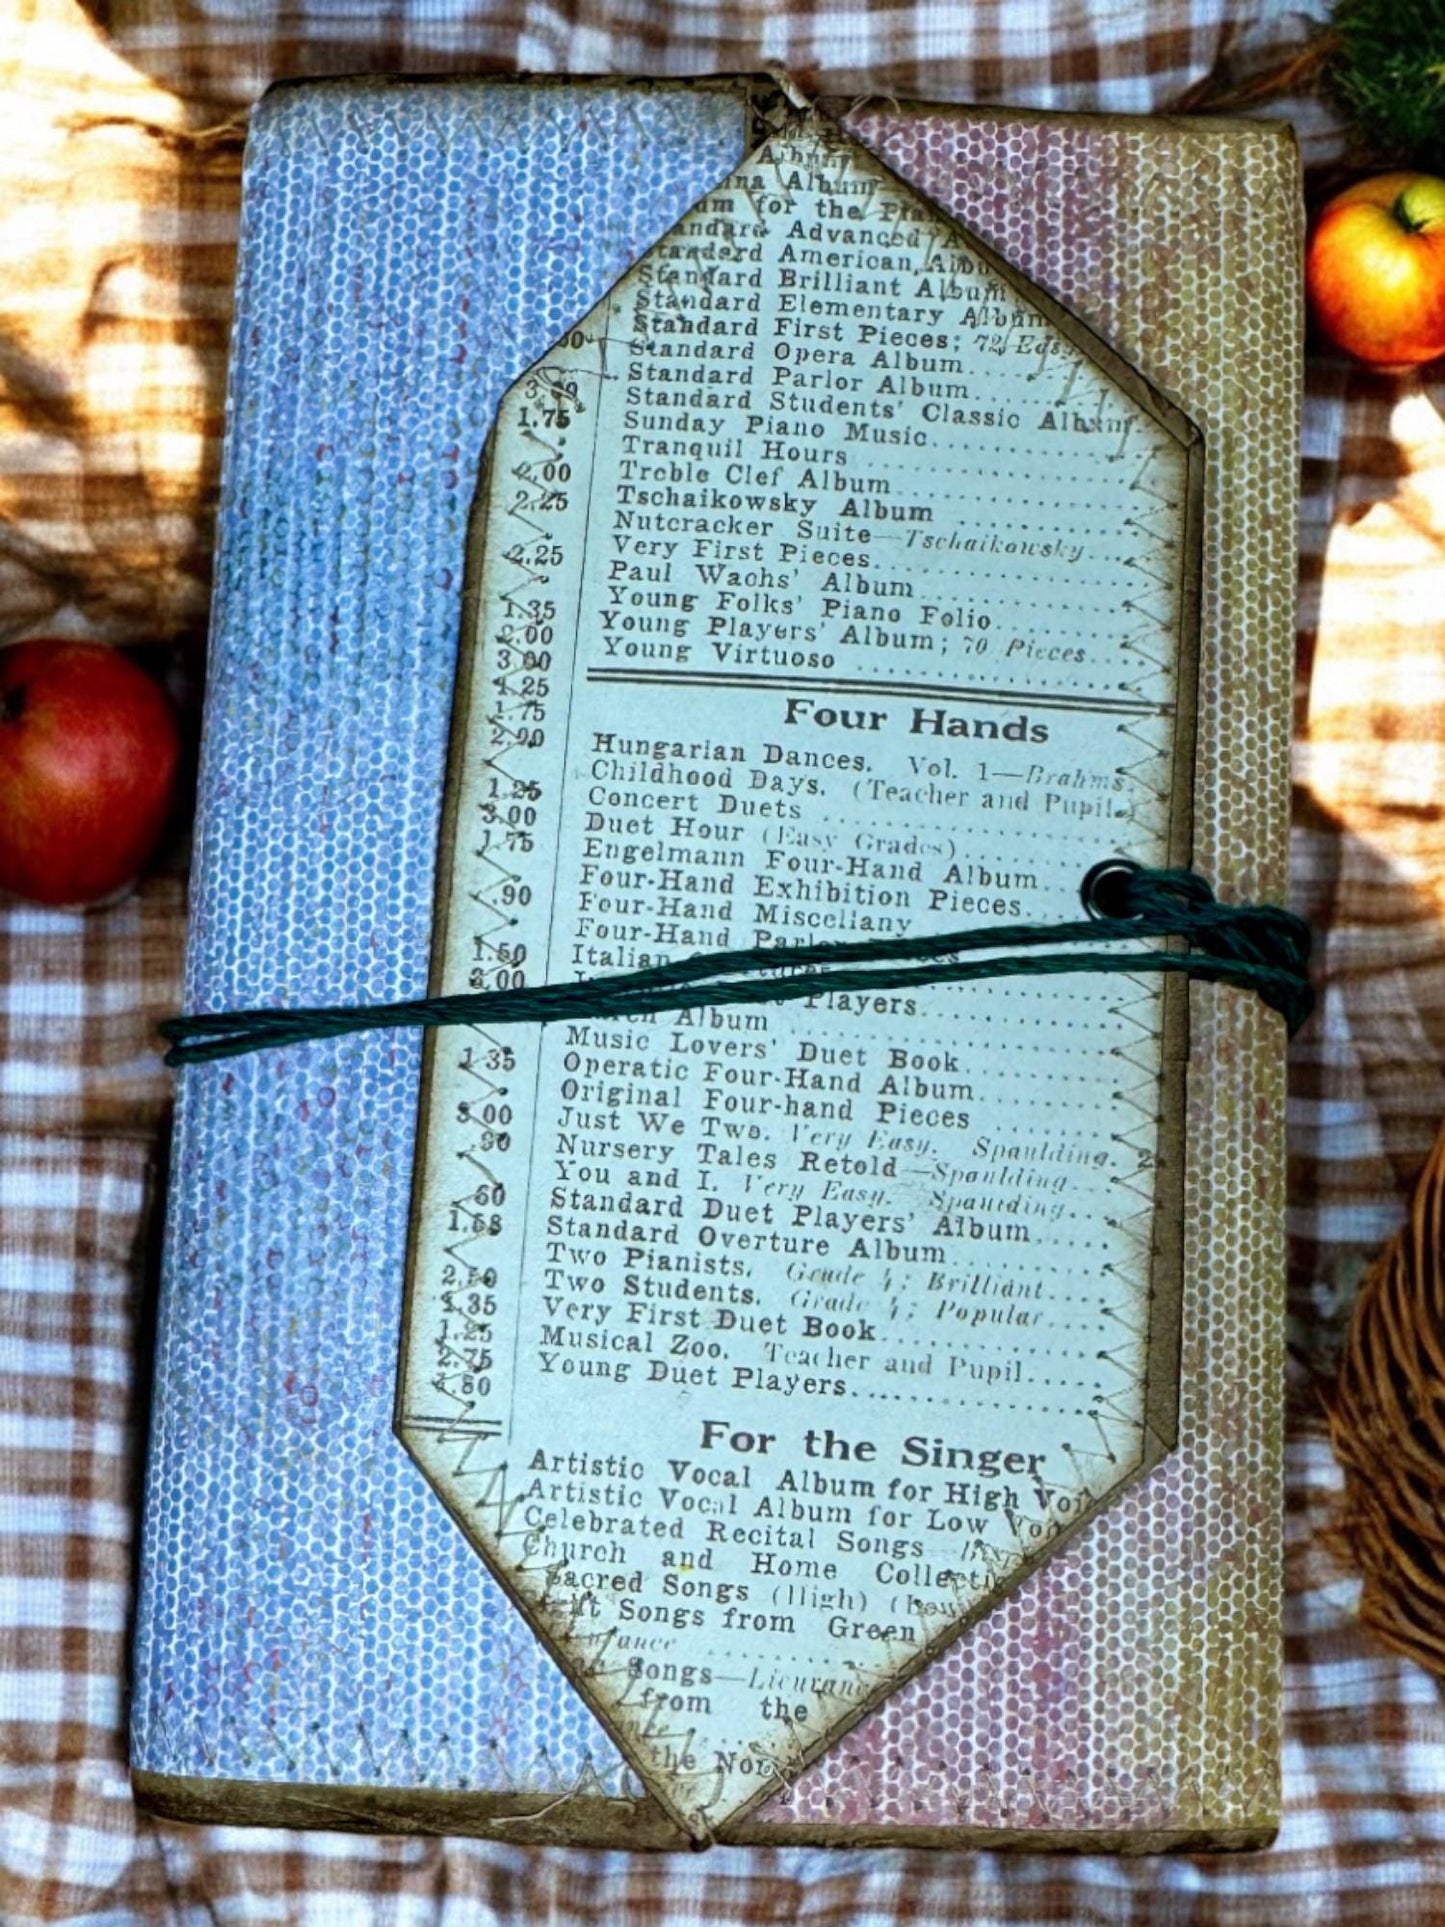 Album
Album
for the
Advanced
Standard American Albu
Standard Brilliant Album
Standard Elementary Album
Standard First Pieces; 72 Eds.
Standard Opera Album
Standard Parlor Album
Standard Students' Classic Album
1.75 Sunday Piano Music
Tranquil Hours
2.00 Treble Clef Album
2.25 Tschaikowsky Album
Nutcracker Suite—Tschaikowsky
2.25 Very First Pieces
Paul Wachs' Album
1.35 Young Folks' Piano Folio
2.00 Young Players' Album; 70 Pieces
3.00 Young Virtuoso
1.25
1.75 Four Hands
2.00 Hungarian Dances. Vol. 1—Brahms.
Childhood Days. (Teacher and Pupil.)
1.25 Concert Duets
3.00 Duet Hour (Easy Grades)
1.75 Engelmann Four-Hand Album
Four-Hand Exhibition Pieces
.90 Four-Hand Miscellany
Four-Hand Parlor Pieces
1.50 Italian
Players
Album
Music Lovers' Duet Book
1.35 Operatic Four-Hand Album
Original Four-hand Pieces
3.00 Just We Two. Very Easy. Spaulding.
.90 Nursery Tales Retold—Spaulding
You and I. Very Easy. Spaulding
.60 Standard Duet Players' Album
Standard Overture Album
Two Pianists. Grade 4; Brilliant
2.50 Two Students. Grade 4; Popular
1.35 Very First Duet Book
1.25 Musical Zoo. Teacher and Pupil
2.75 Young Duet Players
.80
For the Singer
Artistic Vocal Album for High Voi
Artistic Vocal Album for Low Voi
Celebrated Recital Songs
Church and Home Collecti
Sacred Songs (High) (Low
Songs from Green
Songs—Lieurance
from the
the Nor